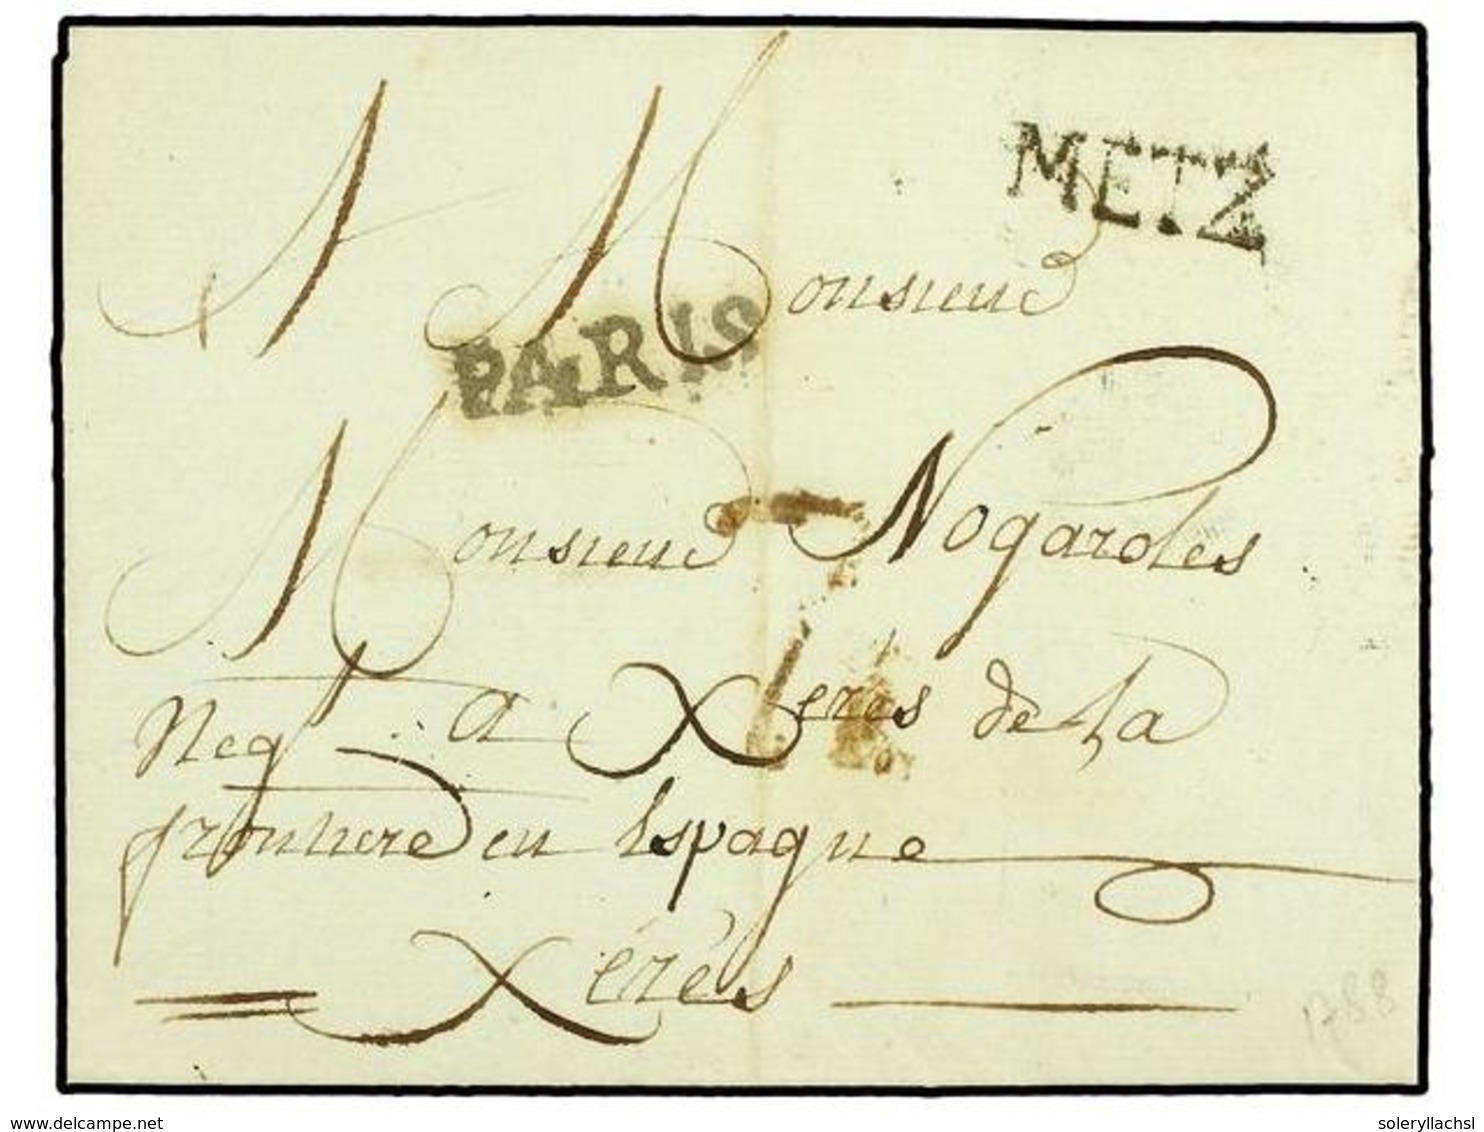 METZ
A Monsieur
PARIS
Monsieur Nogardes
Negt a Xerès de La
frontiere en Espagne
Xérès
1788
delcampe.net
soleryllachsl